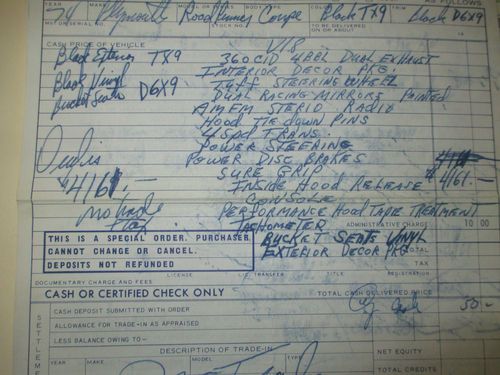 YEAR MAKE MODEL OR SERIES BODY TYPE COLOR TRIM AS FOLLOWS
74 Plymouth Roadrunner Coupe Black TX9 black D6X9
MFT SERIAL NO. STOCK NO. TO BE DELIVERED ON OR ABOUT
CASH PRICE OF VEHICLE V/8
Black Exterior TX9 360 CID 4BBL DUAL EXHAUST
INTERIOR DECOR PKG.
Black Vinyl STEERING WHEEL
Bucket Seats D6X9 DUAL RACING MIRRORS PAINTED
AM FM STERIO RADIO
HOOD TIE DOWN PINS
4 SPD TRANS.
POWER STEERING
POWER DISC BRAKES
SURE GRIP
4161.- INSIDE HOOD RELEASE 4161.-
CONSOLE
no trade PERFORMANCE HOOD TAPE TREATMENT
TACHOMETER ADMINISTRATIVE CHARGE 10 00
THIS IS A SPECIAL ORDER. PURCHASER BUCKET SEATS VINYL
CANNOT CHANGE OR CANCEL. EXTERIOR DECOR PKG TOTAL
DEPOSITS NOT REFUNDED TAX
LICENSE L/C. TRANSFER TITLE REGISTRATION
DOCUMENTARY CHARGE AND FEES
CASH OR CERTIFIED CHECK ONLY TOTAL CASH DELIVERED PRICE
CASH DEPOSIT SUBMITTED WITH ORDER 50-
ALLOWANCE FOR TRADE-IN AS APPRAISED
LESS BALANCE OWING TO
DESCRIPTION OF TRADE-IN NET EQUITY
YEAR MAKE MODEL TYPE TOTAL CREDITS
SETTLEME